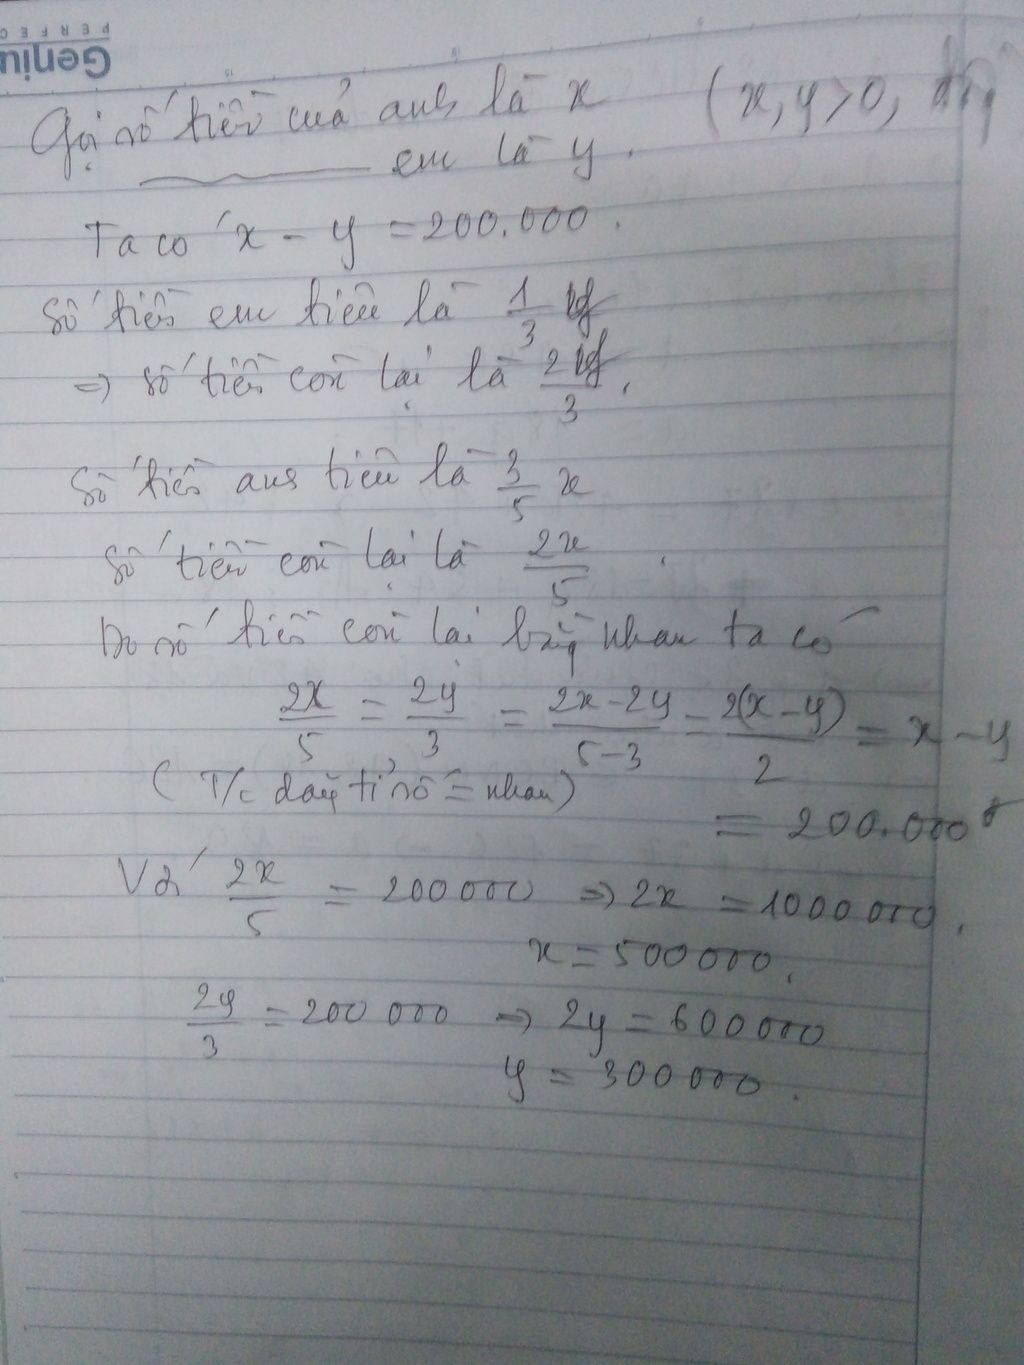 Genius
PERFEC
Gọi số tiền của anh là x (x,y>0, đồng
~ em là y.
Ta có x - y = 200.000.
Số tiền em tiêu là 1/3 y
=> số tiền còn lại là 2y/3.
Số tiền anh tiêu là 3/5 x
Số tiền còn lại là 2x/5.
Do số tiền còn lại bằng nhau ta có
2x/5 = 2y/3 = 2x-2y/5-3 = 2(x-y)/2 = x-y
(T/c dãy tỉ số = nhau)
= 200.000đ
Với 2x/5 = 200000 => 2x = 1000000.
x = 500000.
2y/3 = 200000 => 2y = 600000
y = 300000.